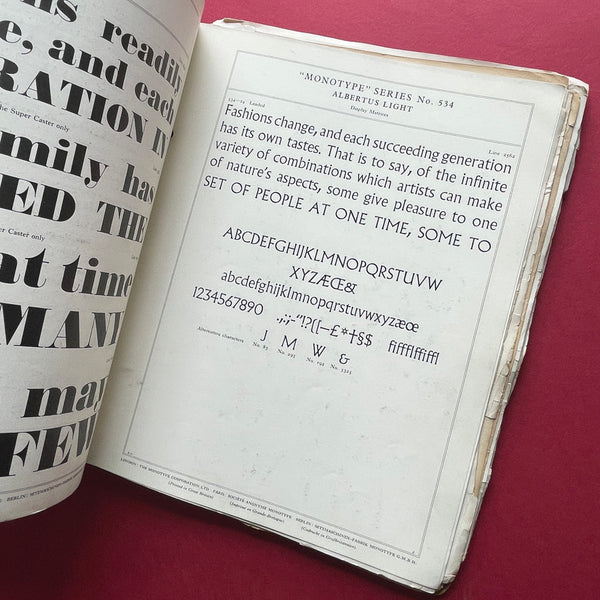 ns readily
e, and each
RATION IN
he Super Caster only
mily has
ED THE
uper Caster only
nt time
MANI
may
FEW
BERLIN: SETZMASCHINEN-FABRIK
"MONOTYPE" SERIES No. 534
ALBERTUS LIGHT
Display Matrices
534—24 Leaded
Line
Fashions change, and each succeeding generation
has its own tastes. That is to say, of the infinite
variety of combinations which artists can make
of nature's aspects, some give pleasure to one
SET OF PEOPLE AT ONE TIME, SOME TO
ABCDEFGHIJKLMNOPQRSTUVW
XYZÆŒ&
abcdefghijklmnopqrstuvwxyzæœ
1234567890 .,:;-"!?([—£*†§$ fiffflffiffl
Alternative characters
J M W &
No. 85 No. 295 No. 299 No. 1322
LONDON : THE MONOTYPE CORPORATION, LTD PARIS : SOCIÉTÉ ANONYME MONOTYPE BERLIN : SETZMASCHINEN-FABRIK MONOTYPE G.M.B.H.
(Printed in Great Britain) (Imprimé en Grande-Bretagne) (Gedruckt in Großbritannien)